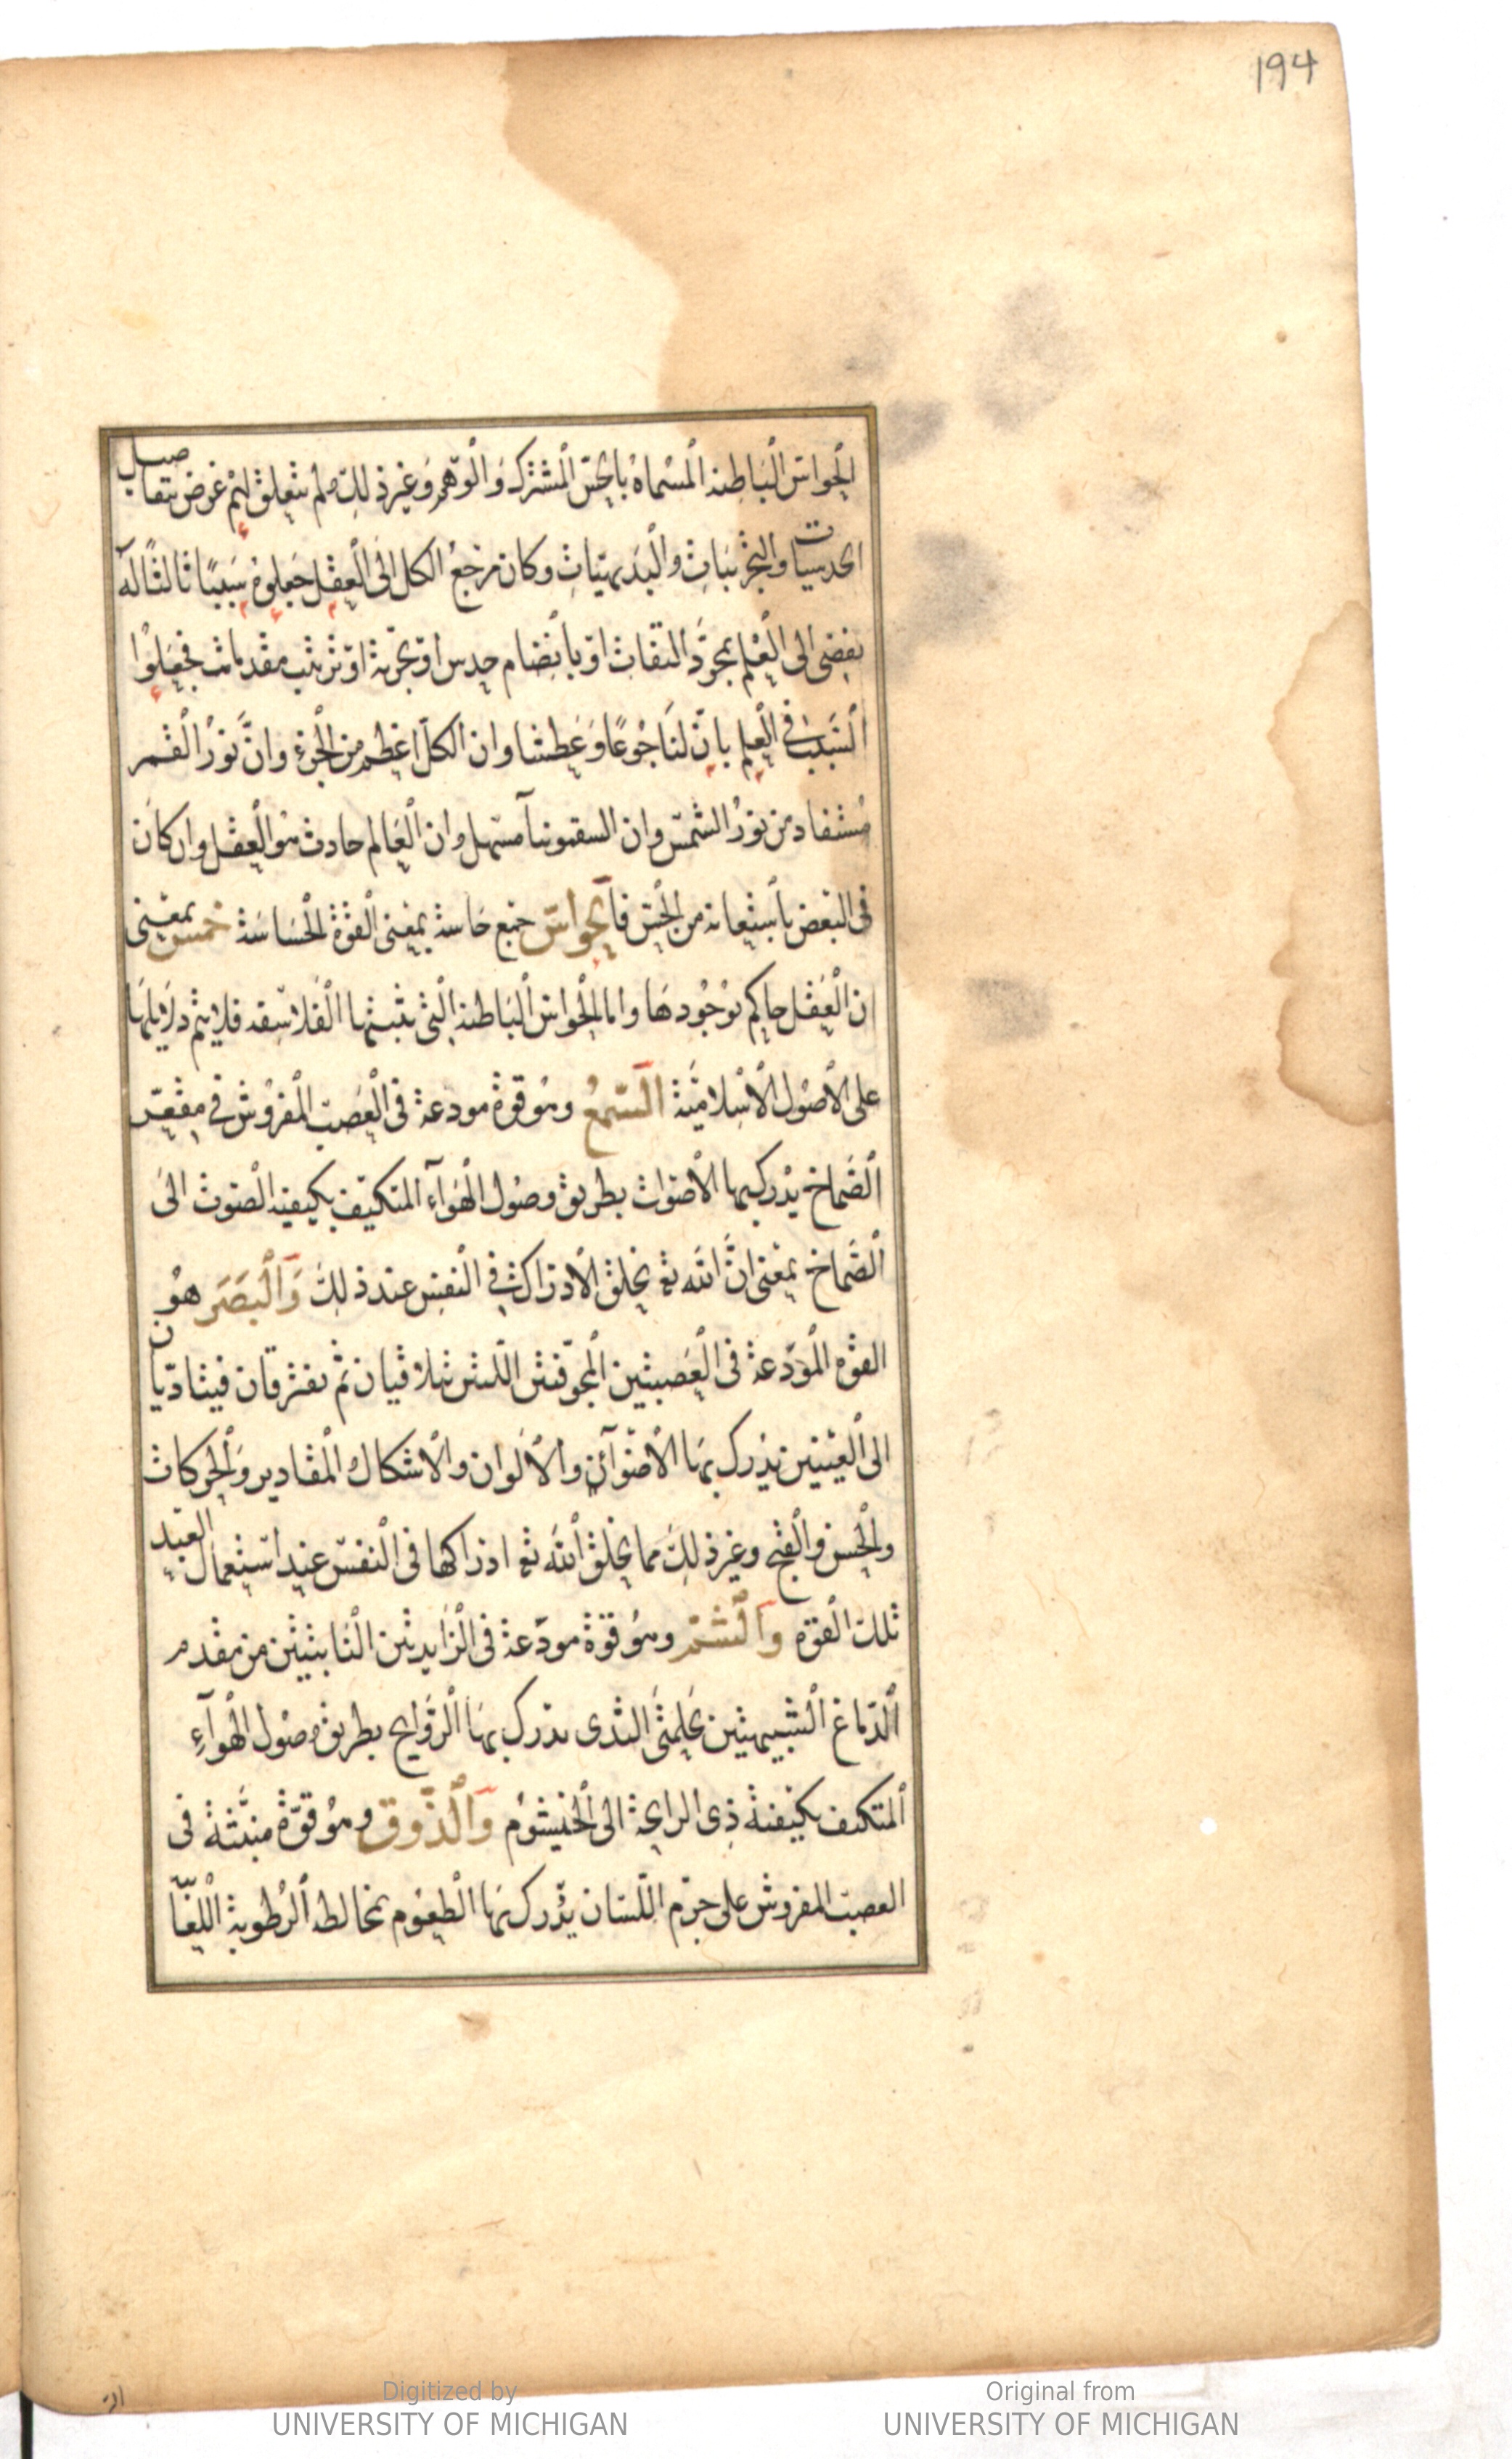 194
الحواس الباطنة المسماة بالحس المشترك والوهم وغير ذلك ولم يتعلق لهم غرض بتفاصيل
الحدسيات والتجربيات والبديهيات وكان مرجع الكل الى العقل جعلوه سببا ثالثا له
يفضى الى العلم بمجرد التفات او بانضمام حدس او تجربة او ترتيب مقدمات فجعلوا
السبب فى العلم بان لنا جوعا وعطشا وان الكل اعظم من الجزء وان نور القمر
مستفاد من نور الشمس وان السقمونيا مسهل وان العالم حادث هو العقل وان كان
فى البعض باستعانة من الحس فالحواس جمع حاسة بمعنى القوة الحساسة خمس بمعنى
ان العقل حاكم بوجودها واما الحواس الباطنة التى تثبتها الفلاسفة فلا يتم دلايلها
على الاصول الاسلامية السمع وهو قوة مودعة فى العصب المفروش فى مقعر
الصماخ يدرك بها الاصوات بطريق وصول الهوآء المتكيف بكيفية الصوت الى
الصماخ بمعنى ان الله تع يخلق الادراك فى النفس عند ذلك والبصر هو
القوه المودعة فى العصبتين المجوفتين اللتين تتلاقيان ثم تفترقان فيتاديان
الى العينين يدرك بها الاضوآء والالوان والاشكال المقادير والحركات
والحسن والقبح وغير ذلك مما يخلق الله تع ادراكها فى النفس عند استعمال العبد
تلك القوه والشم وهو قوة مودعة فى الزايدتين النابتتين من مقدم
الدماغ الشبيهتين بحلمتى الثدى يدرك بها الروايح بطريق وصول الهوآء
المتكيف بكيفية ذى الرايحة الى الخيشوم والذوق وهو قوة منبثة فى
العصب المفروش على جرم اللسان يدرك بها الطعوم بمخالطة الرطوبة اللعا
Digitized by
UNIVERSITY OF MICHIGAN
Original from
UNIVERSITY OF MICHIGAN